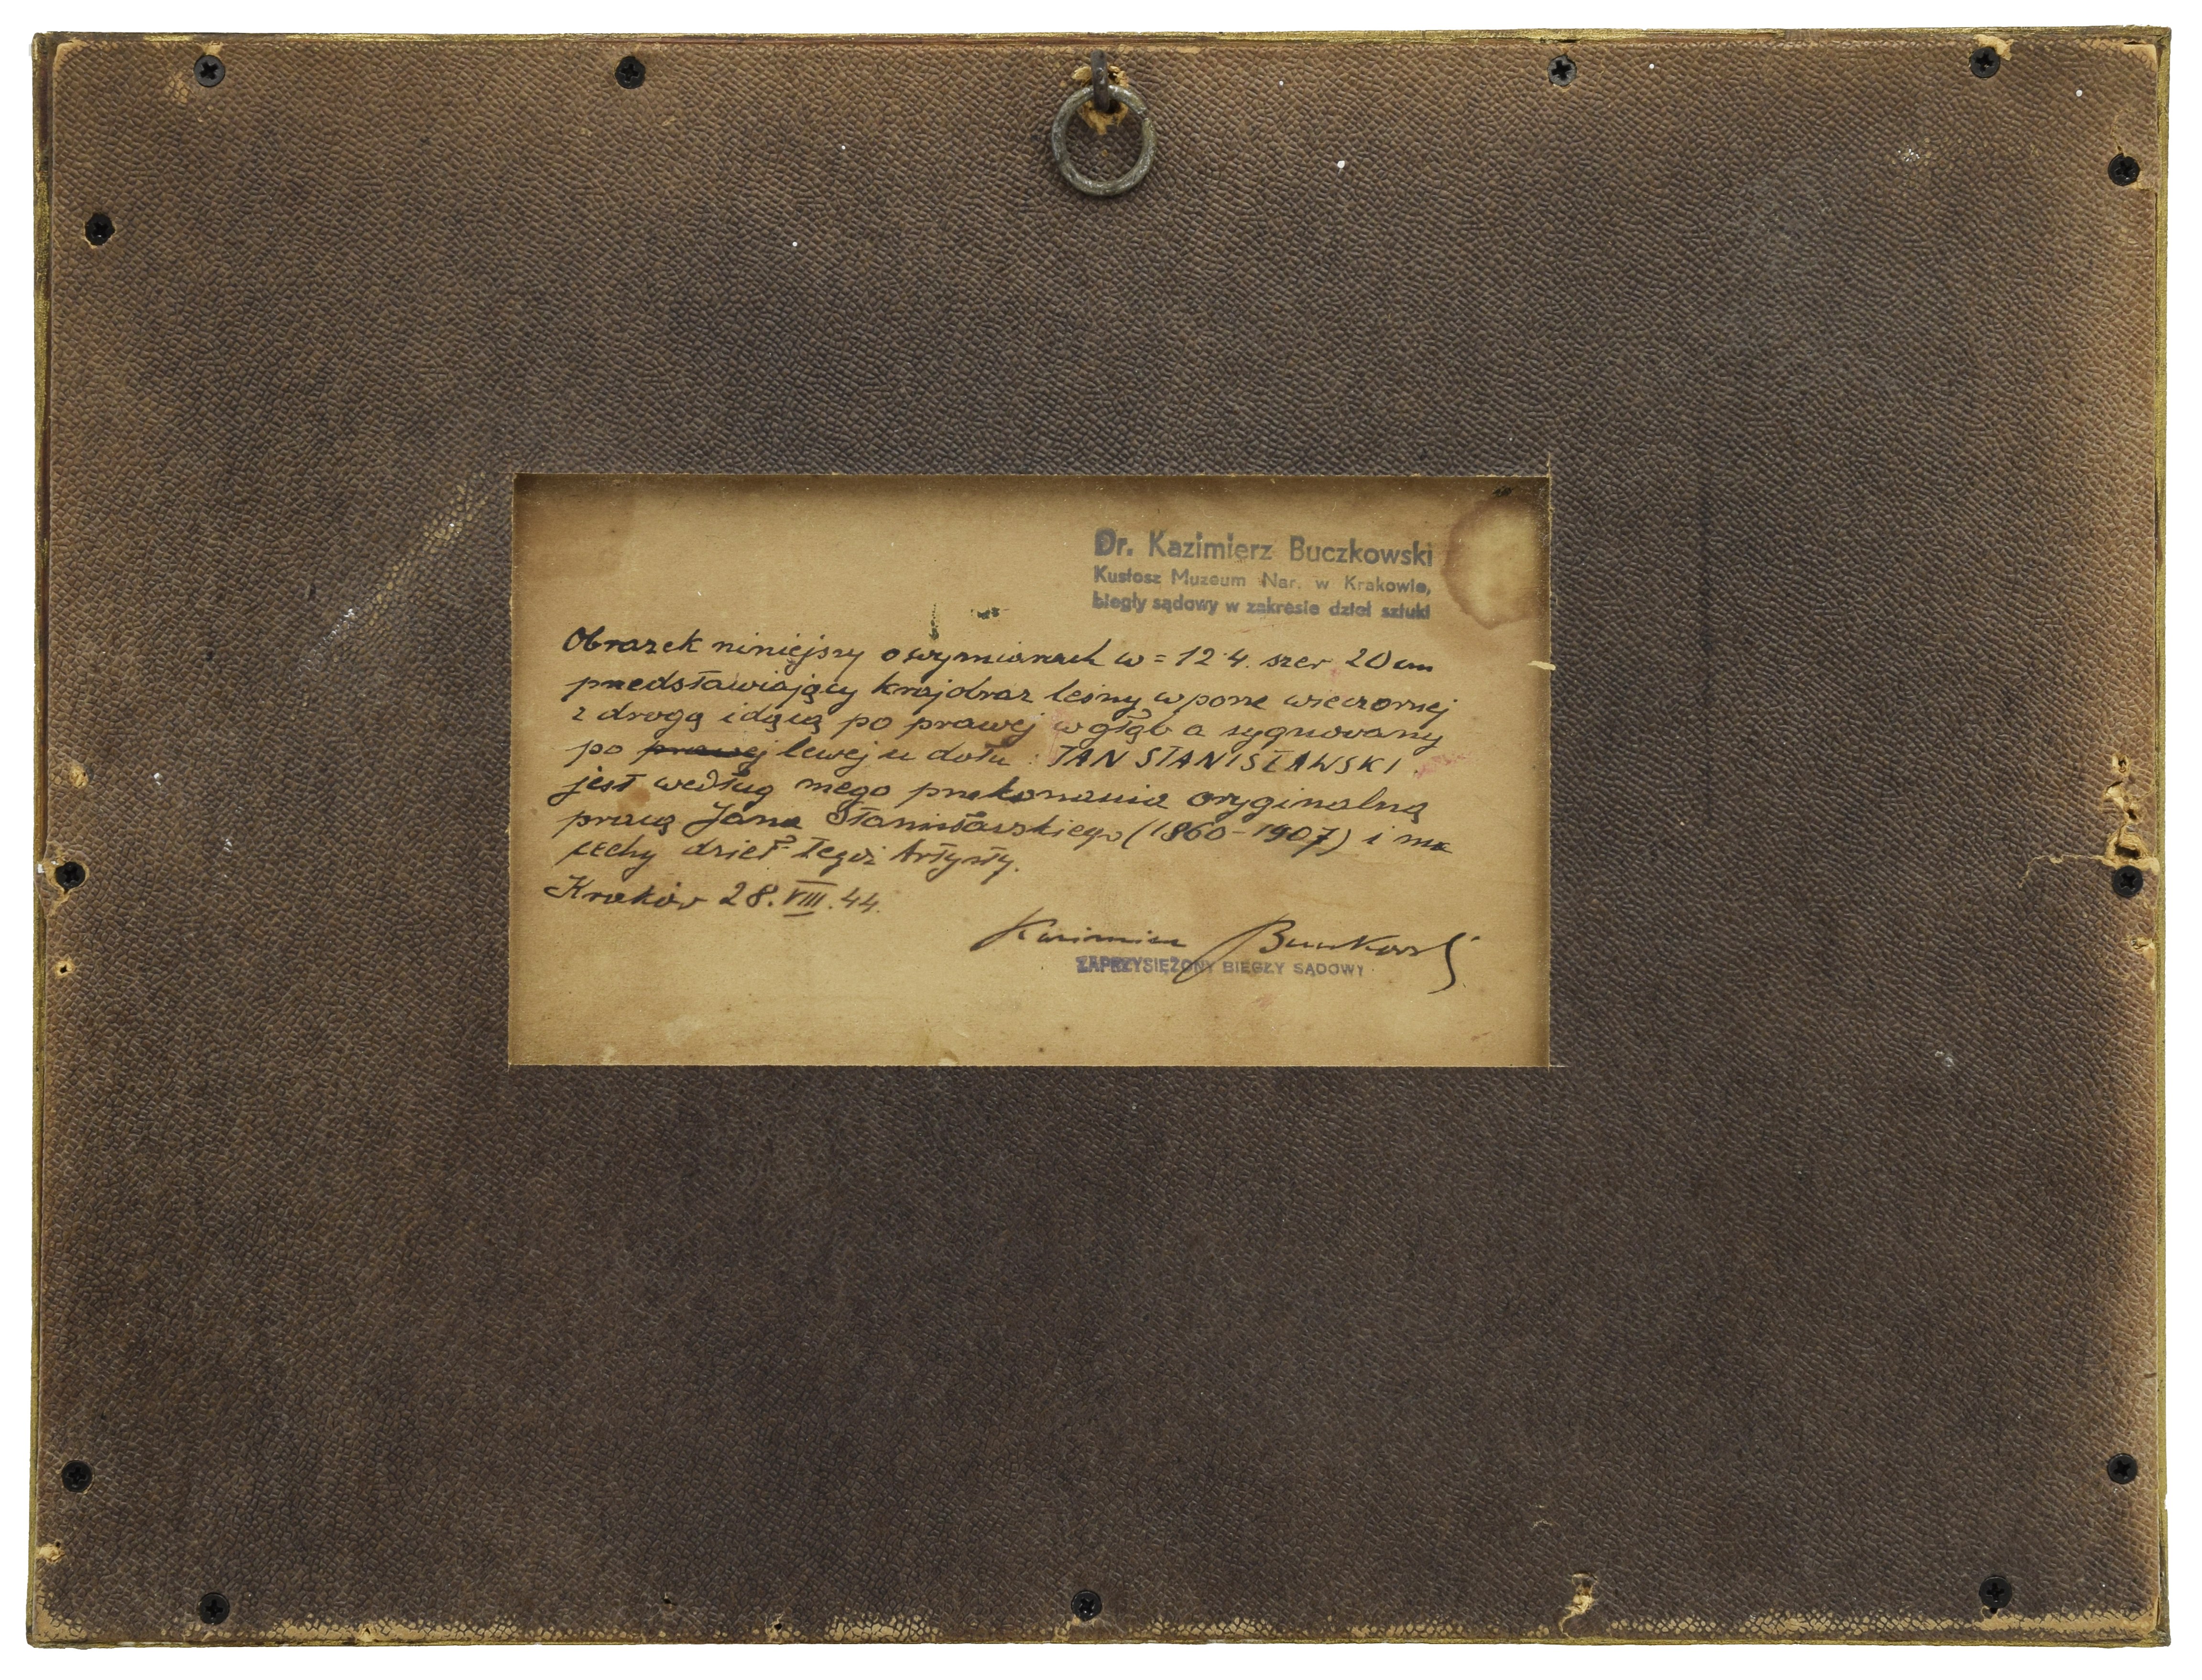 Dr. Kazimierz Buczkowski
Kustosz Muzeum Nar. w Krakowie,
biegły sądowy w zakresie dzieł sztuki
Obrazek niniejszy o wymiarach w = 12·4. szer 20 cm
przedstawiający krajobraz leśny w porze wieczornej
z drogą idącą po prawej w głąb a sygnowany
po prawej lewej u dołu : JAN STANISŁAWSKI
jest według mego przekonania oryginalną
pracą Jana Stanisławskiego (1860-1907) i ma
cechy dzieł tegoż Artysty.
Kraków 28.VIII.44.
Kazimierz Buczkowski
ZAPRZYSIĘŻONY BIEGŁY SĄDOWY